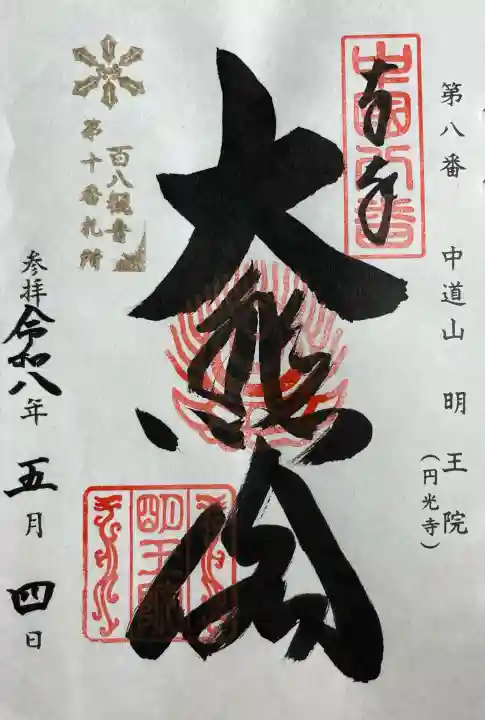 第八番 中道山 明王院
(円光寺)
奉拝
中国八番
大悲閣
百八観音
第十番札所
明王院
参拝 令和八年 五月 四日